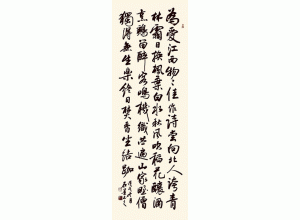 為愛江西物々佳作詩嘗向北人誇青
林霜日換楓葉白水秋風吹稻花釀酒
烹鷄留醉客鳴機織苎遍山家野僧
獨得無生樂終日焚香坐結跏